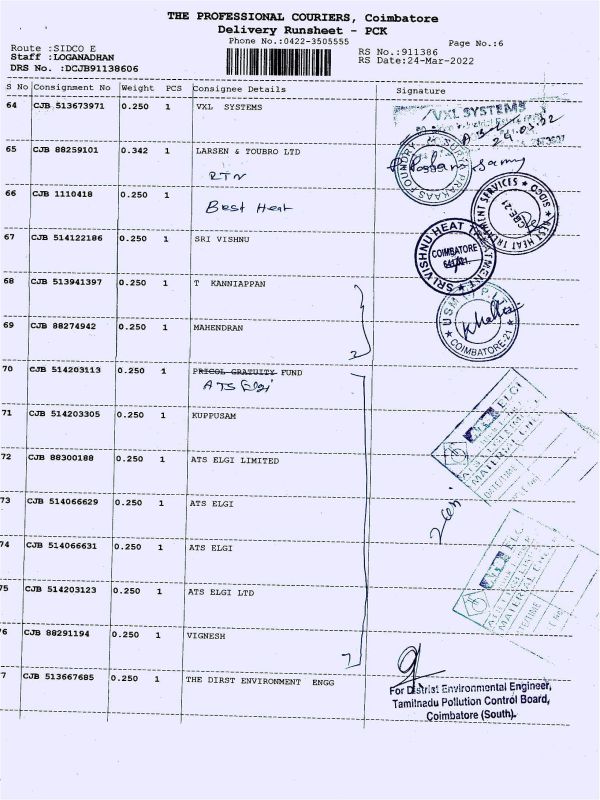 THE PROFESSIONAL COURIERS, Coimbatore
Delivery Runsheet - PCK
Phone No.:0422-3505555
Page No.:6
Route :SIDCO E
RS No.:911386
Staff :LOGANADHAN
RS Date:24-Mar-2022
DRS No. :DCJB91138606
S No Consignment No Weight PCS Consignee Details Signature
64 CJB 513673971 0.250 1 VXL SYSTEMS
VXL SYSTEMS
65 CJB 88259101 0.342 1 LARSEN & TOUBRO LTD
RTN
66 CJB 1110418 0.250 1
Best Heat
BEST HEAT TREATMENT SERVICES SIDCO CBE-21
67 CJB 514122186 0.250 1 SRI VISHNU
SRI VISHNU HEAT TREATMENT COIMBATORE 641 021.
68 CJB 513941397 0.250 1 T KANNIAPPAN
COIMBATORE-21
69 CJB 88274942 0.250 1 MAHENDRAN
2
70 CJB 514203113 0.250 1 PRICOL GRATUITY FUND
ATS Elgi
71 CJB 514203305 0.250 1 KUPPUSAM
72 CJB 88300188 0.250 1 ATS ELGI LIMITED
73 CJB 514066629 0.250 1 ATS ELGI
74 CJB 514066631 0.250 1 ATS ELGI
75 CJB 514203123 0.250 1 ATS ELGI LTD
76 CJB 88291194 0.250 1 VIGNESH
7
7 CJB 513667685 0.250 1 THE DIRST ENVIRONMENT ENGG
For District Environmental Engineer,
Tamilnadu Pollution Control Board,
Coimbatore (South).